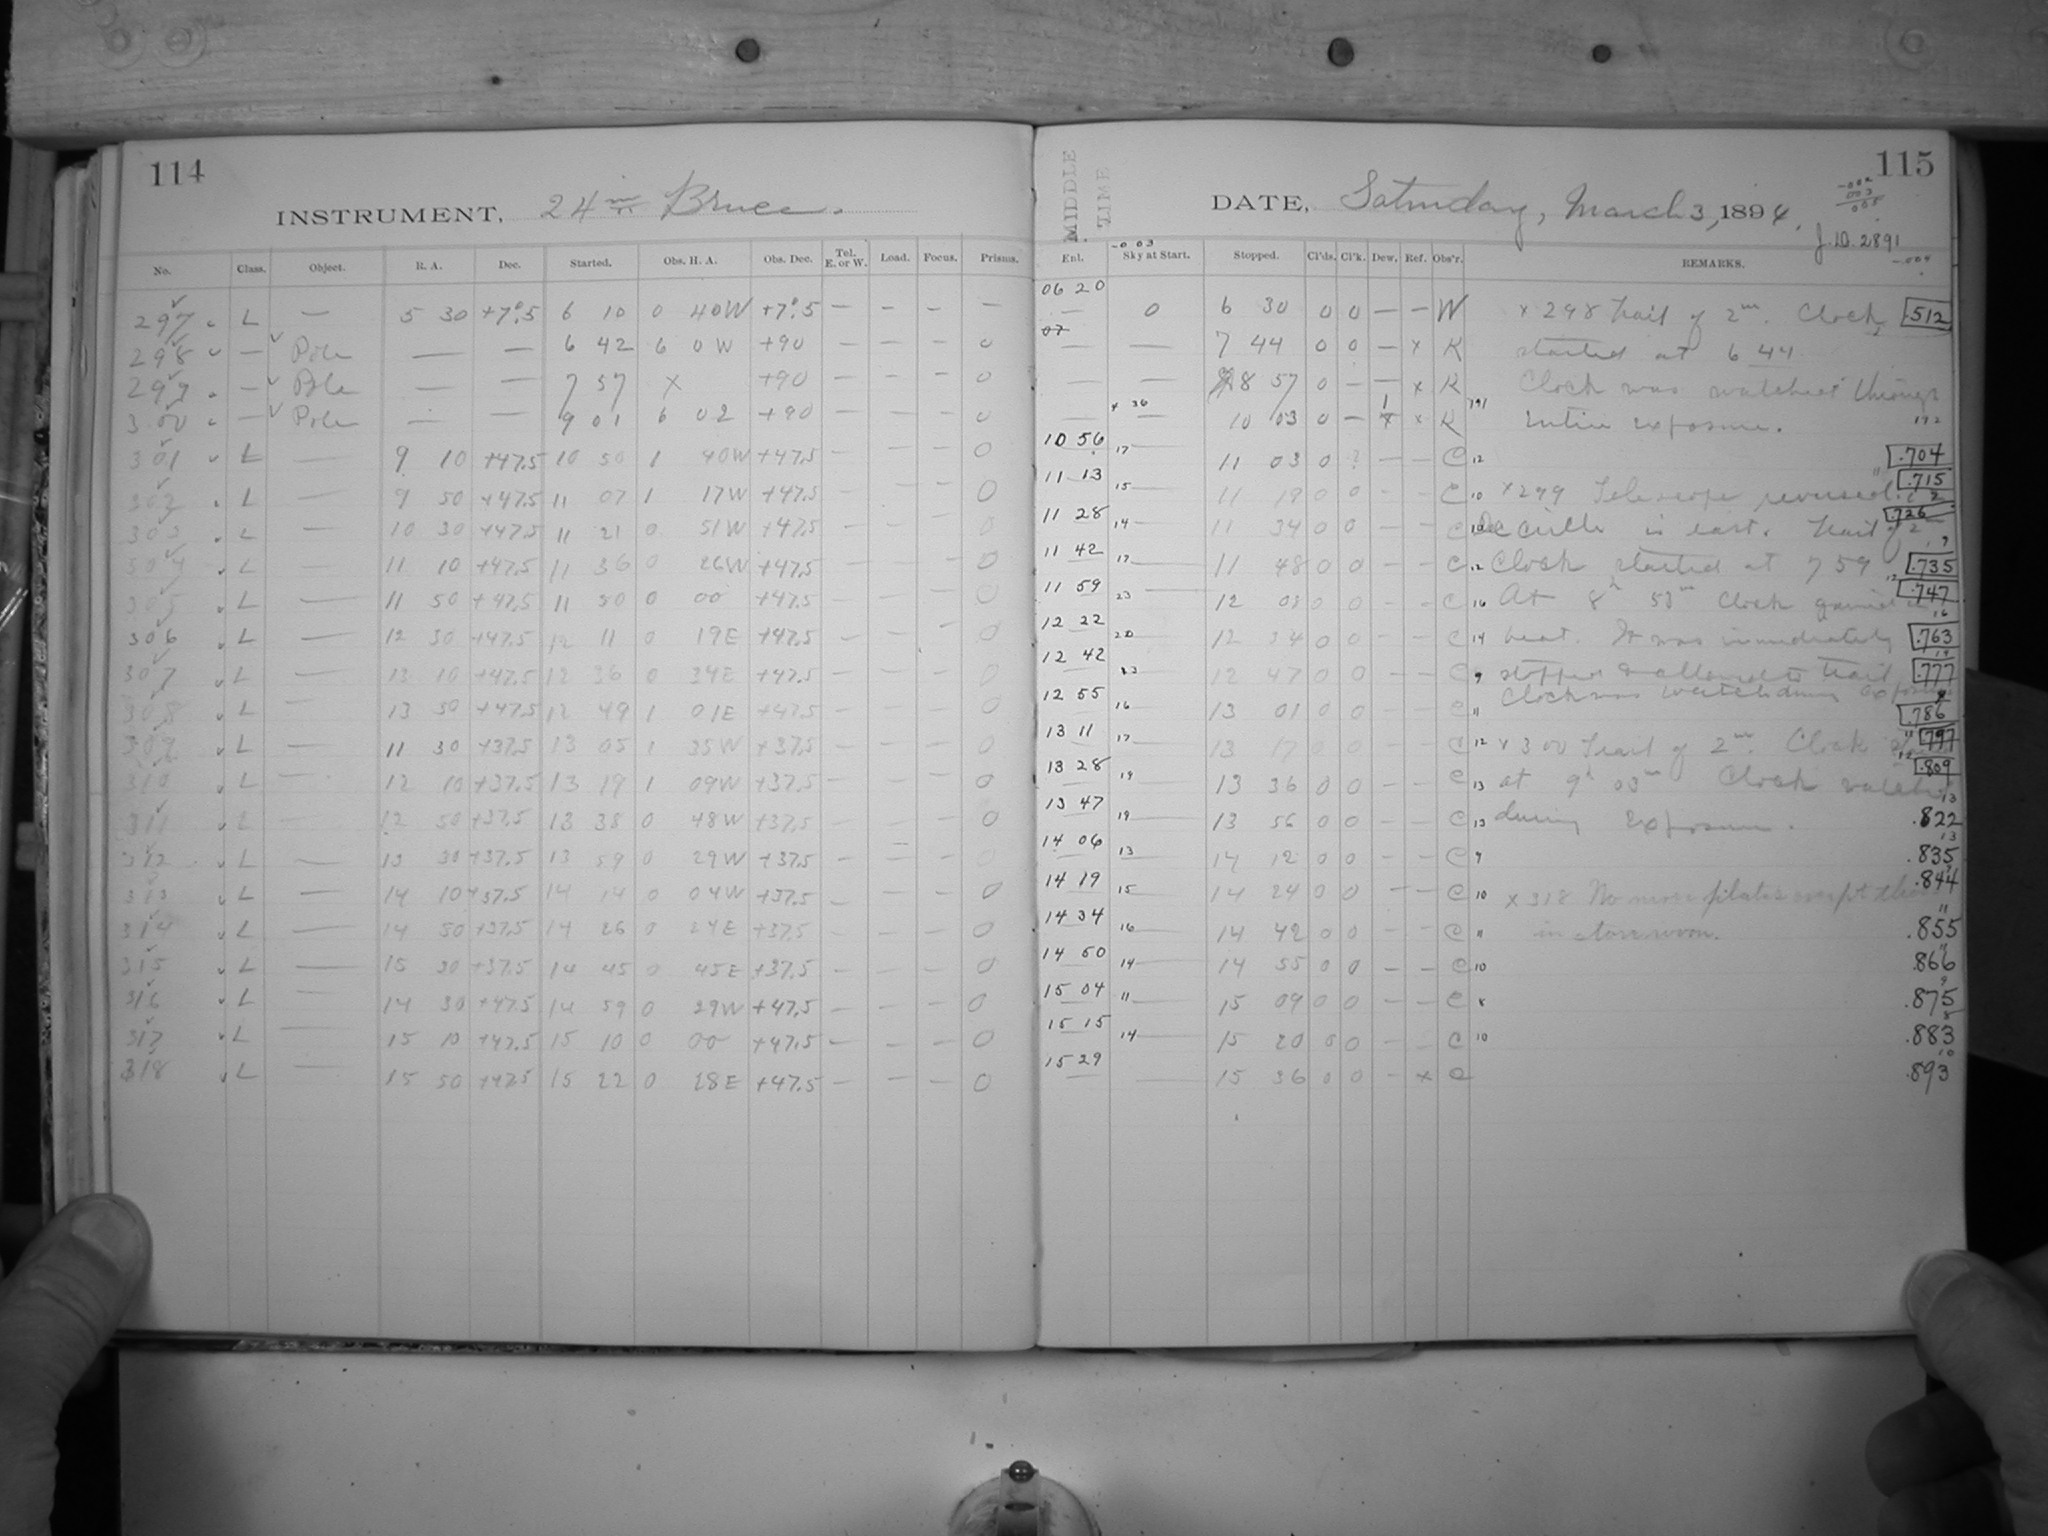 114
INSTRUMENT, 24 in Bruce.
No. Class. Object. R. A. Dec. Started. Obs. H. A. Obs. Dec. Tel. E. or W. Load. Focus. Prisms.
297 L — 5 30 +7°.5 6 10 0 40W +7°.5 — — — —
298 — Pole — — 6 42 6 0 W +90 — — — 0
299 — Pole — — 7 57 X +90 — — — 0
300 — Pole — — 9 01 6 02 +90 — — — 0
301 L — 9 10 +47.5 10 50 1 40W +47.5 — — — 0
302 L — 9 50 +47.5 11 07 1 17W +47.5 — — — 0
303 L — 10 30 +47.5 11 21 0 51W +47.5 — — — 0
304 L — 11 10 +47.5 11 36 0 26W +47.5 — — — 0
305 L — 11 50 +47.5 11 50 0 00 +47.5 — — — 0
306 L — 12 30 +47.5 12 11 0 19E +47.5 — — — 0
307 L — 13 10 +47.5 12 36 0 34E +47.5 — — — 0
308 L — 13 50 +47.5 12 49 1 01E +47.5 — — — 0
309 L — 11 30 +37.5 13 05 1 35W +37.5 — — — 0
310 L — 12 10 +37.5 13 19 1 09W +37.5 — — — 0
311 L — 12 50 +37.5 13 38 0 48W +37.5 — — — 0
312 L — 13 30 +37.5 13 59 0 29W +37.5 — — — 0
313 L — 14 10 +37.5 14 14 0 04W +37.5 — — — 0
314 L — 14 50 +37.5 14 26 0 24E +37.5 — — — 0
315 L — 15 30 +37.5 14 45 0 45E +37.5 — — — 0
316 L — 14 30 +47.5 14 59 0 29W +47.5 — — — 0
317 L — 15 10 +47.5 15 10 0 00 +47.5 — — — 0
318 L — 15 50 +47.5 15 22 0 28E +47.5 — — — 0
115
MIDDLE TIME
DATE, Saturday, March 3, 1894.
J.D. 2891
Enl. Sky at Start. Stopped. Cl'ds. Cl'k. Dew. Ref. Obs'r. REMARKS.
06 20 0 6 30 0 0 — — W x 298 Trail of 2m. Clock .512
07 — 7 44 0 0 — x K started at 6 44
— — 8 57 0 — — x K Clock was watched through
— — 10 03 0 — x K entire exposure.
10 56 17 11 03 0 ? — — C 12 .704
11 13 15 11 19 0 0 — — C 10 x 299 Telescope reversed .715
11 28 14 11 34 0 0 — — C circle is east. Trail of 2m .726
11 42 17 11 48 0 0 — — C 12 Clock started at 7 59 .735
11 59 23 12 08 0 0 — — C 16 At 8h 53m Clock gained a .747
12 22 20 12 34 0 0 — — C 14 beat. It was immediately .763
12 42 23 12 47 0 0 — — C 9 stopped & allowed to trail .777
Clock was watched during exposure
12 55 16 13 01 0 0 — — C 11 .786
13 11 17 13 17 0 0 — — C 12 x 300 Trail of 2m. Clock started .797
13 28 19 13 36 0 0 — — C 13 at 9h 03m Clock watched .809
13 47 19 13 56 0 0 — — C 13 during exposure. .822
14 06 13 14 12 0 0 — — C 9 .835
14 19 15 14 24 0 0 — — C 10 x 318 No more plates except those .844
14 34 16 14 42 0 0 — — C 11 in store room. .855
14 50 14 14 55 0 0 — — C 10 .866
15 04 11 15 09 0 0 — — C 8 .875
15 15 14 15 20 0 0 — — C 10 .883
15 29 15 36 0 0 — x C .893